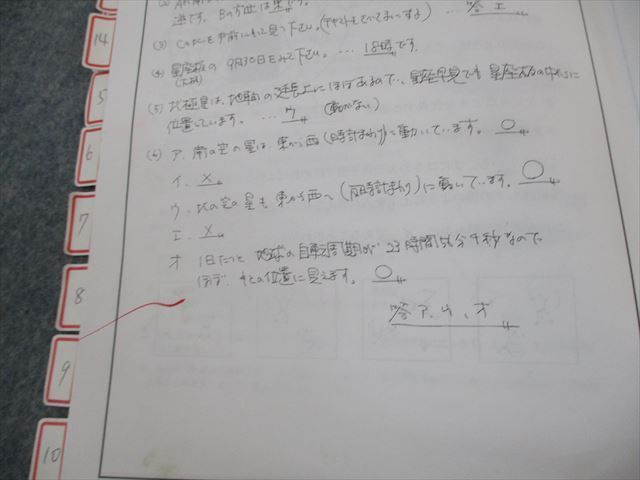 逆です。Bの方位は東です。
(3) CのところEを手前にもって見て下さい。 … 答エ
(4) 星座板の9月30日をみて下さい。 … 18時です。
(5) 北極星は、地軸の延長上にほぼあるので、星座早見でも星座板の中心に
位置しています。 … ウ (動かない)
(6) ア. 南の空の星は、東から西(時計まわり)に動いています。 ○
イ. ×
ウ. 北の空の星も東から西へ(反時計まわり)に動いています。 ○
エ. ×
オ 1日たつと地球の自転周期が23時間56分4秒なので
ほぼ、もとの位置に見えます。 ○
答 ア、ウ、オ
14
5
6
7
8
9
10